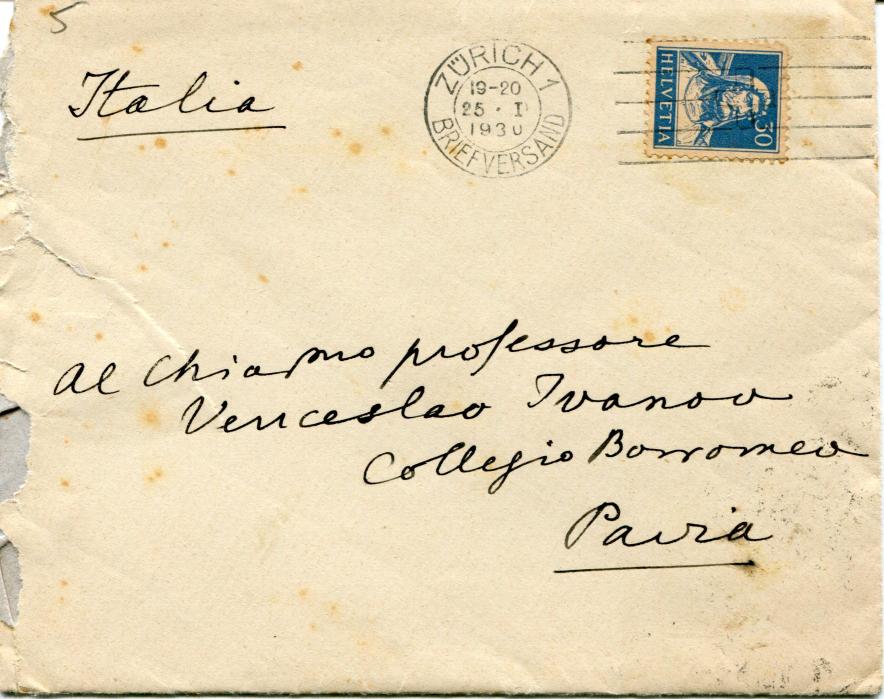 5
Italia
ZÜRICH 1
19-20
25 · I
1930
BRIEFVERSAND
HELVETIA
30
Al Chiarmo professore
Venceslao Ivanov
Collegio Borromeo
Pavia